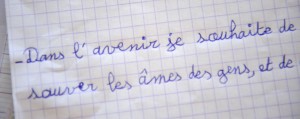 - Dans l'avenir je souhaite de
sauver les âmes des gens, et de